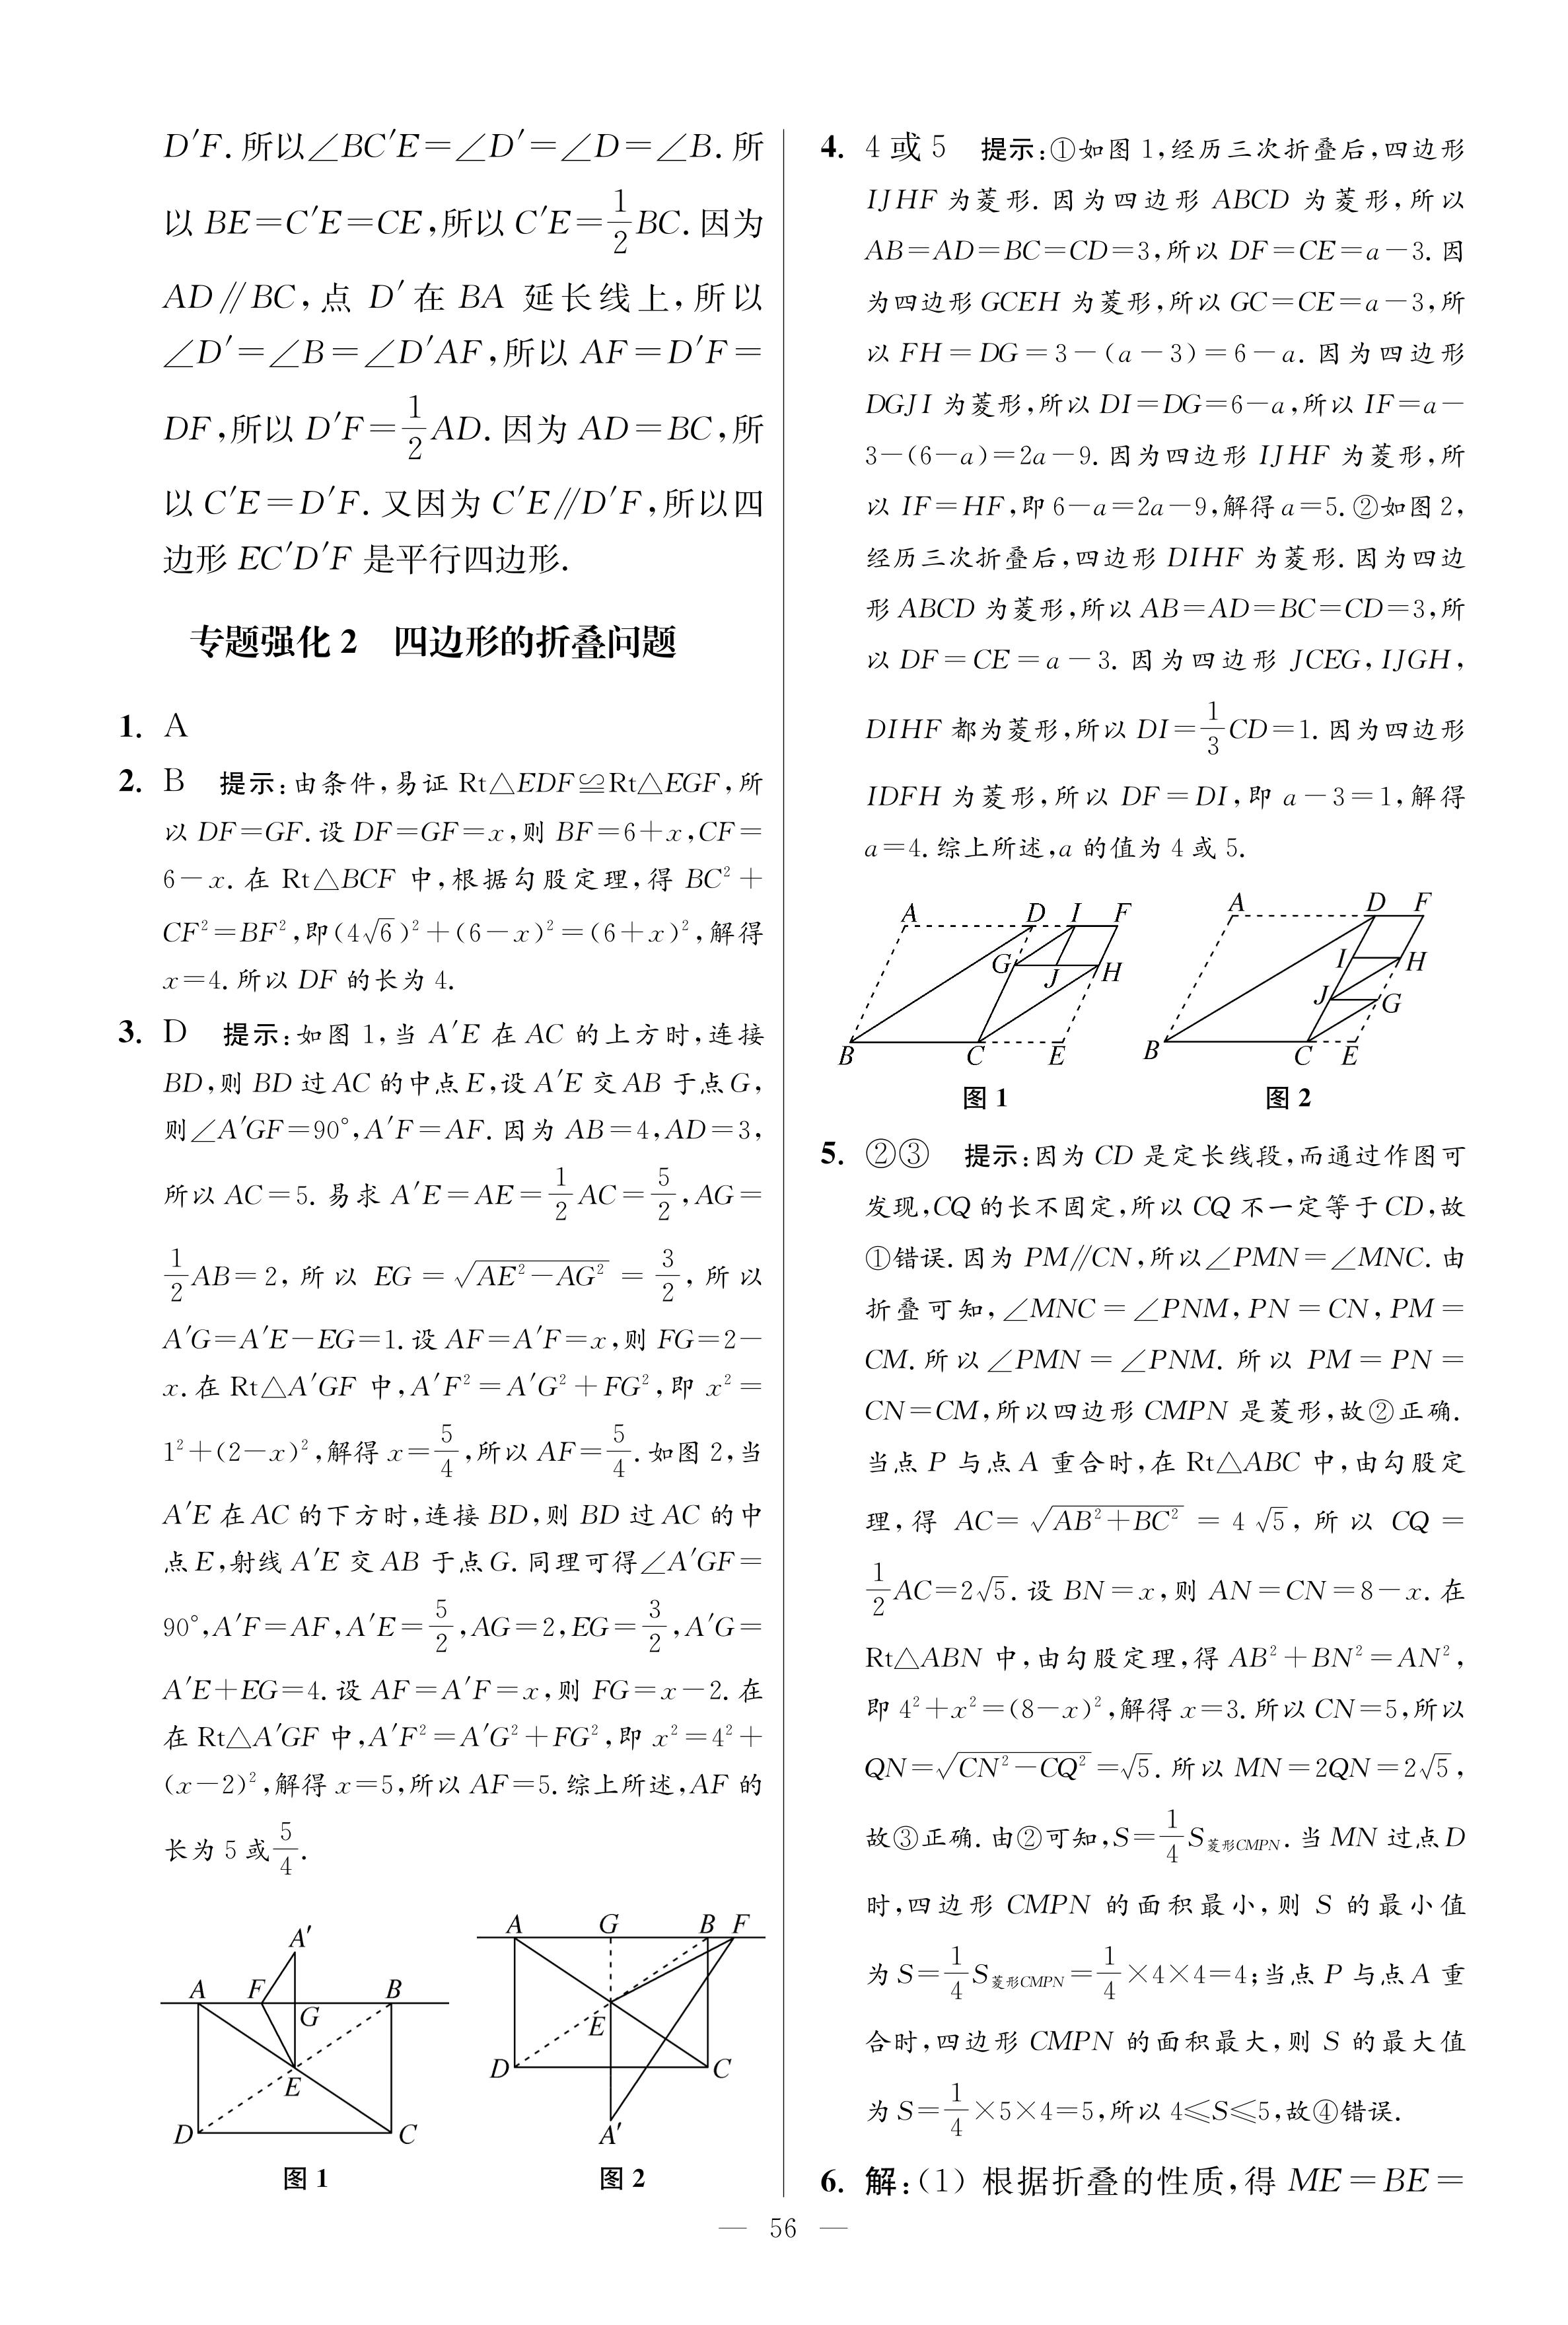 D′F. 所以∠BC′E=∠D′=∠D=∠B. 所
以 BE=C′E=CE,所以 C′E=1/2BC. 因为
AD∥BC,点 D′在 BA 延长线上,所以
∠D′=∠B=∠D′AF,所以 AF=D′F=
DF,所以 D′F=1/2AD. 因为 AD=BC,所
以 C′E=D′F. 又因为 C′E∥D′F,所以四
边形 EC′D′F 是平行四边形.
专题强化 2 四边形的折叠问题
1. A
2. B 提示:由条件,易证 Rt△EDF≌Rt△EGF,所
以 DF=GF. 设 DF=GF=x,则 BF=6+x,CF=
6-x. 在 Rt△BCF 中,根据勾股定理,得 BC²+
CF²=BF²,即(4√6)²+(6-x)²=(6+x)²,解得
x=4. 所以 DF 的长为 4.
3. D 提示:如图 1,当 A′E 在 AC 的上方时,连接
BD,则 BD 过 AC 的中点 E,设 A′E 交 AB 于点 G,
则∠A′GF=90°,A′F=AF. 因为 AB=4,AD=3,
所以 AC=5. 易求 A′E=AE=1/2AC=5/2,AG=
1/2AB=2,所以 EG=√(AE²-AG²)=3/2,所以
A′G=A′E-EG=1. 设 AF=A′F=x,则 FG=2-
x. 在 Rt△A′GF 中,A′F²=A′G²+FG²,即 x²=
1²+(2-x)²,解得 x=5/4,所以 AF=5/4. 如图 2,当
A′E 在 AC 的下方时,连接 BD,则 BD 过 AC 的中
点 E,射线 A′E 交 AB 于点 G. 同理可得∠A′GF=
90°,A′F=AF,A′E=5/2,AG=2,EG=3/2,A′G=
A′E+EG=4. 设 AF=A′F=x,则 FG=x-2. 在
在 Rt△A′GF 中,A′F²=A′G²+FG²,即 x²=4²+
(x-2)²,解得 x=5,所以 AF=5. 综上所述,AF 的
长为 5 或5/4.
A′
A F B
G
E
D C
图 1
A G B F
E
D C
A′
图 2
4. 4 或 5 提示:①如图 1,经历三次折叠后,四边形
IJHF 为菱形. 因为四边形 ABCD 为菱形,所以
AB=AD=BC=CD=3,所以 DF=CE=a-3. 因
为四边形 GCEH 为菱形,所以 GC=CE=a-3,所
以 FH=DG=3-(a-3)=6-a. 因为四边形
DGJI 为菱形,所以 DI=DG=6-a,所以 IF=a-
3-(6-a)=2a-9. 因为四边形 IJHF 为菱形,所
以 IF=HF,即 6-a=2a-9,解得 a=5. ②如图 2,
经历三次折叠后,四边形 DIHF 为菱形. 因为四边
形 ABCD 为菱形,所以 AB=AD=BC=CD=3,所
以 DF=CE=a-3. 因为四边形 JCEG,IJGH,
DIHF 都为菱形,所以 DI=1/3CD=1. 因为四边形
IDFH 为菱形,所以 DF=DI,即 a-3=1,解得
a=4. 综上所述,a 的值为 4 或 5.
A D I F
G J H
B C E
图 1
A D F
I H
J G
B C E
图 2
5. ②③ 提示:因为 CD 是定长线段,而通过作图可
发现,CQ 的长不固定,所以 CQ 不一定等于 CD,故
①错误. 因为 PM∥CN,所以∠PMN=∠MNC. 由
折叠可知,∠MNC=∠PNM,PN=CN,PM=
CM. 所以∠PMN=∠PNM. 所以 PM=PN=
CN=CM,所以四边形 CMPN 是菱形,故②正确.
当点 P 与点 A 重合时,在 Rt△ABC 中,由勾股定
理,得 AC=√(AB²+BC²)=4√5,所以 CQ=
1/2AC=2√5. 设 BN=x,则 AN=CN=8-x. 在
Rt△ABN 中,由勾股定理,得 AB²+BN²=AN²,
即 4²+x²=(8-x)²,解得 x=3. 所以 CN=5,所以
QN=√(CN²-CQ²)=√5. 所以 MN=2QN=2√5,
故③正确. 由②可知,S=1/4S菱形CMPN. 当 MN 过点 D
时,四边形 CMPN 的面积最小,则 S 的最小值
为 S=1/4S菱形CMPN=1/4×4×4=4;当点 P 与点 A 重
合时,四边形 CMPN 的面积最大,则 S 的最大值
为 S=1/4×5×4=5,所以 4≤S≤5,故④错误.
6. 解:(1) 根据折叠的性质,得 ME=BE=
— 56 —